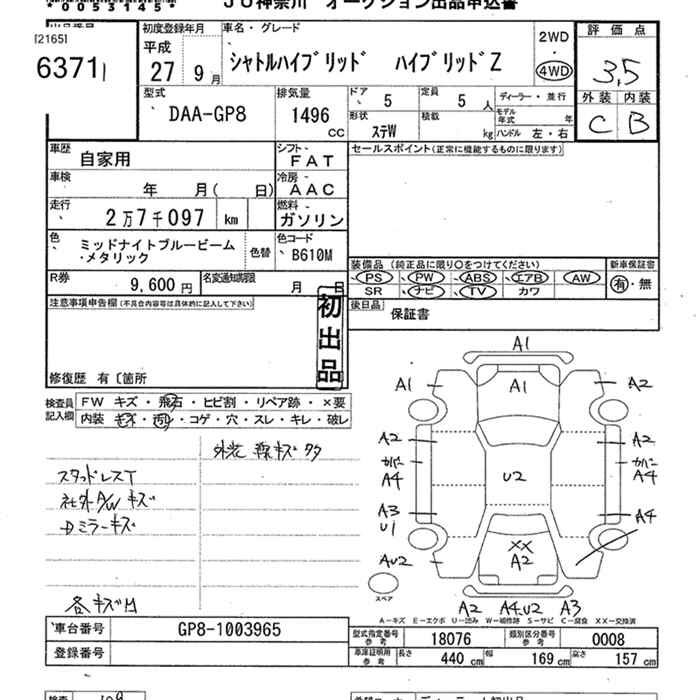 * 0053145 *
JU神奈川 オークション出品申込書
出品番号
[2165]
6371
初度登録年月
平成
27 9月
車名・グレード
シャトルハイブリッド ハイブリッドZ
2WD
4WD
評価点
3,5
外装 内装
C B
型式
DAA-GP8
排気量
1496
CC
ドア
5
定員
5人
ディーラー・並行
形状
ステW
積載
kg
モデル年式
年
ハンドル 左・右
車歴
自家用
シフト
FAT
セールスポイント(正常に機能するものに限ります)
車検
年 月( 日)
冷房
AAC
走行
2万7千097 km
燃料
ガソリン
色
ミッドナイトブルービーム
・メタリック
色替
色コード
B610M
装備品 (純正品に限り〇をつけてください)
新車保証書
PS・PW・ABS・エアB AW
SR ナビ・TV カワ
有・無
R券
9,600円
名変通知期限
月 日
後日品
保証書
注意事項申告欄(不具合内容等は具体的に記入して下さい)
初出品
修復歴 有〔箇所
検査員記入欄
FW キズ・飛石・ヒビ割・リペア跡・×要
内装 キズ・凹・コゲ・穴・スレ・キレ・破レ
外装 線キズ 多
スタッドレスT
社外A/W キズ
Dミラーキズ
各キズ凹
A1
A1
A1
A2
A2
A2
カバー
カバー
A4
A4
U2
A3
A4
U1
AU2
XX
A2
スペア
A2
A4.U2
A3
A-キズ E-エクボ U-凹み W-補修跡 S-サビ C-腐食 XX-交換済
車台番号
GP8-1003965
登録番号
型式指定番号
参考
18076
類別区分番号
参考
0008
車庫証明用
参考
長さ
440 cm
幅
169 cm
高さ
157 cm